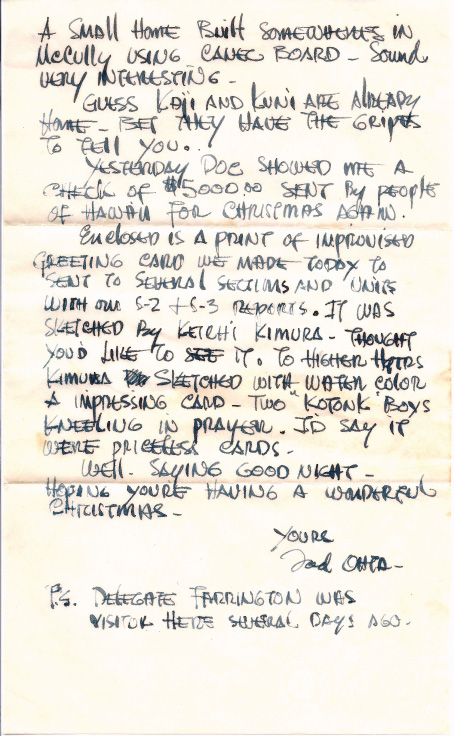 A SMALL HOME BUILT SOMEWHERES IN
McCULLY USING CANEC BOARD - SOUND
VERY INTERESTING -
GUESS KOJI AND KUNI ARE ALREADY
HOME - BET THEY HAVE THE GRIPES
TO TELL YOU..
YESTERDAY DOC SHOWED ME A
CHECK OF $5000.00 SENT BY PEOPLE
OF HAWAII FOR CHRISTMAS AGAIN.
ENCLOSED IS A PRINT OF IMPROVISED
GREETING CARD WE MADE TODAY TO
SENT TO SEVERAL SECTIONS AND UNITS
WITH OUR S-2 + S-3 REPORTS. IT WAS
SKETCHED BY KEICHI KIMURA - THOUGHT
YOU'D LIKE TO SEE IT. TO HIGHER HQTRS
KIMURA SKETCHED WITH WATER COLOR
A IMPRESSING CARD - TWO "KOTONK" BOYS
KNEELING IN PRAYER. I'D SAY IT
WERE PRICELESS CARDS.
WELL - SAYING GOOD NIGHT -
HOPING YOU'RE HAVING A WONDERFUL
CHRISTMAS -
YOURS
OHTA -
P.S. DELEGATE FARRINGTON WAS
VISITOR HERE SEVERAL DAYS AGO.